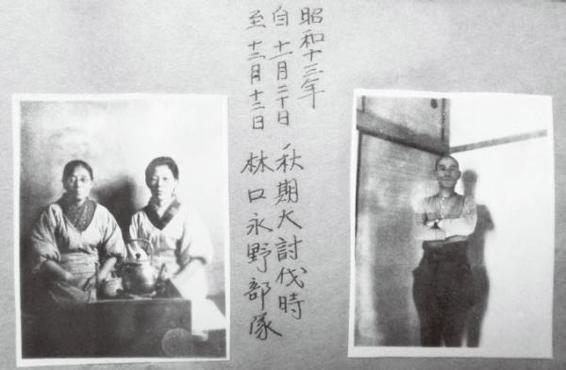 昭和十三年
自 十一月二十日
至 十二月十二日
秋期大討伐時
林口永野部隊